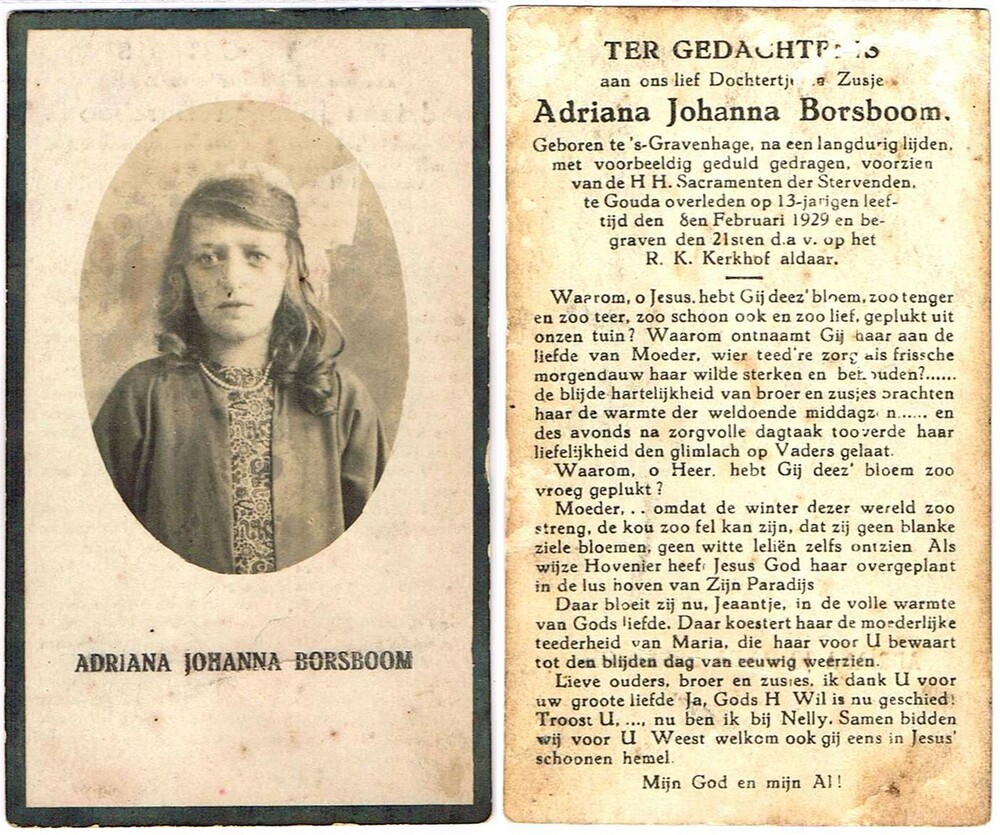 ADRIANA JOHANNA BORSBOOM
TER GEDACHT
aan ons lief Dochtertj Zusje
Adriana Johanna Borsboom.
Geboren te 's-Gravenhage, na een langdurig lijden,
met voorbeeldig geduld gedragen, voorzien
van de H H. Sacramenten der Stervenden,
te Gouda overleden op 13-jarigen leef-
tijd den 8en Februari 1929 en be-
graven den 21sten d.a v. op het
R. K. Kerkhof aldaar.
Waarom, o Jesus, hebt Gij deez' bloem, zoo tenger
en zoo teer, zoo schoon ook en zoo lief, geplukt uit
onzen tuin? Waarom ontnaamt Gij haar aan de
liefde van Moeder, wier teed're zorg als frissche
morgendauw haar wilde sterken en behouden?......
de blijde hartelijkheid van broer en zusjes brachten
haar de warmte der weldoende middagz n...... en
des avonds na zorgvolle dagtaak tooverde haar
liefelijkheid den glimlach op Vaders gelaat.
Waarom, o Heer, hebt Gij deez' bloem zoo
vroeg geplukt?
Moeder, . . omdat de winter dezer wereld zoo
streng, de kou zoo fel kan zijn, dat zij geen blanke
ziele bloemen, geen witte leliën zelfs ontzien Als
wijze Hovenier heeft Jesus God haar overgeplant
in de lus hoven van Zijn Paradijs
Daar bloeit zij nu, Jeaantje, in de volle warmte
van Gods liefde. Daar koestert haar de moederlijke
teederheid van Maria, die haar voor U bewaart
tot den blijden dag van eeuwig weerzien.
Lieve ouders, broer en zusjes, ik dank U voor
uw groote liefde Ja, Gods H Wil is nu geschied!
Troost U, ..., nu ben ik bij Nelly. Samen bidden
wij voor U Weest welkom ook gij eens in Jesus'
schoonen hemel.
Mijn God en mijn Al!